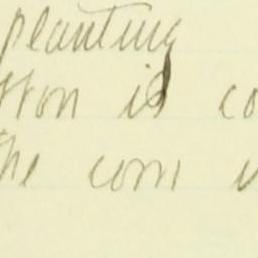 planting
tton is co
he corn